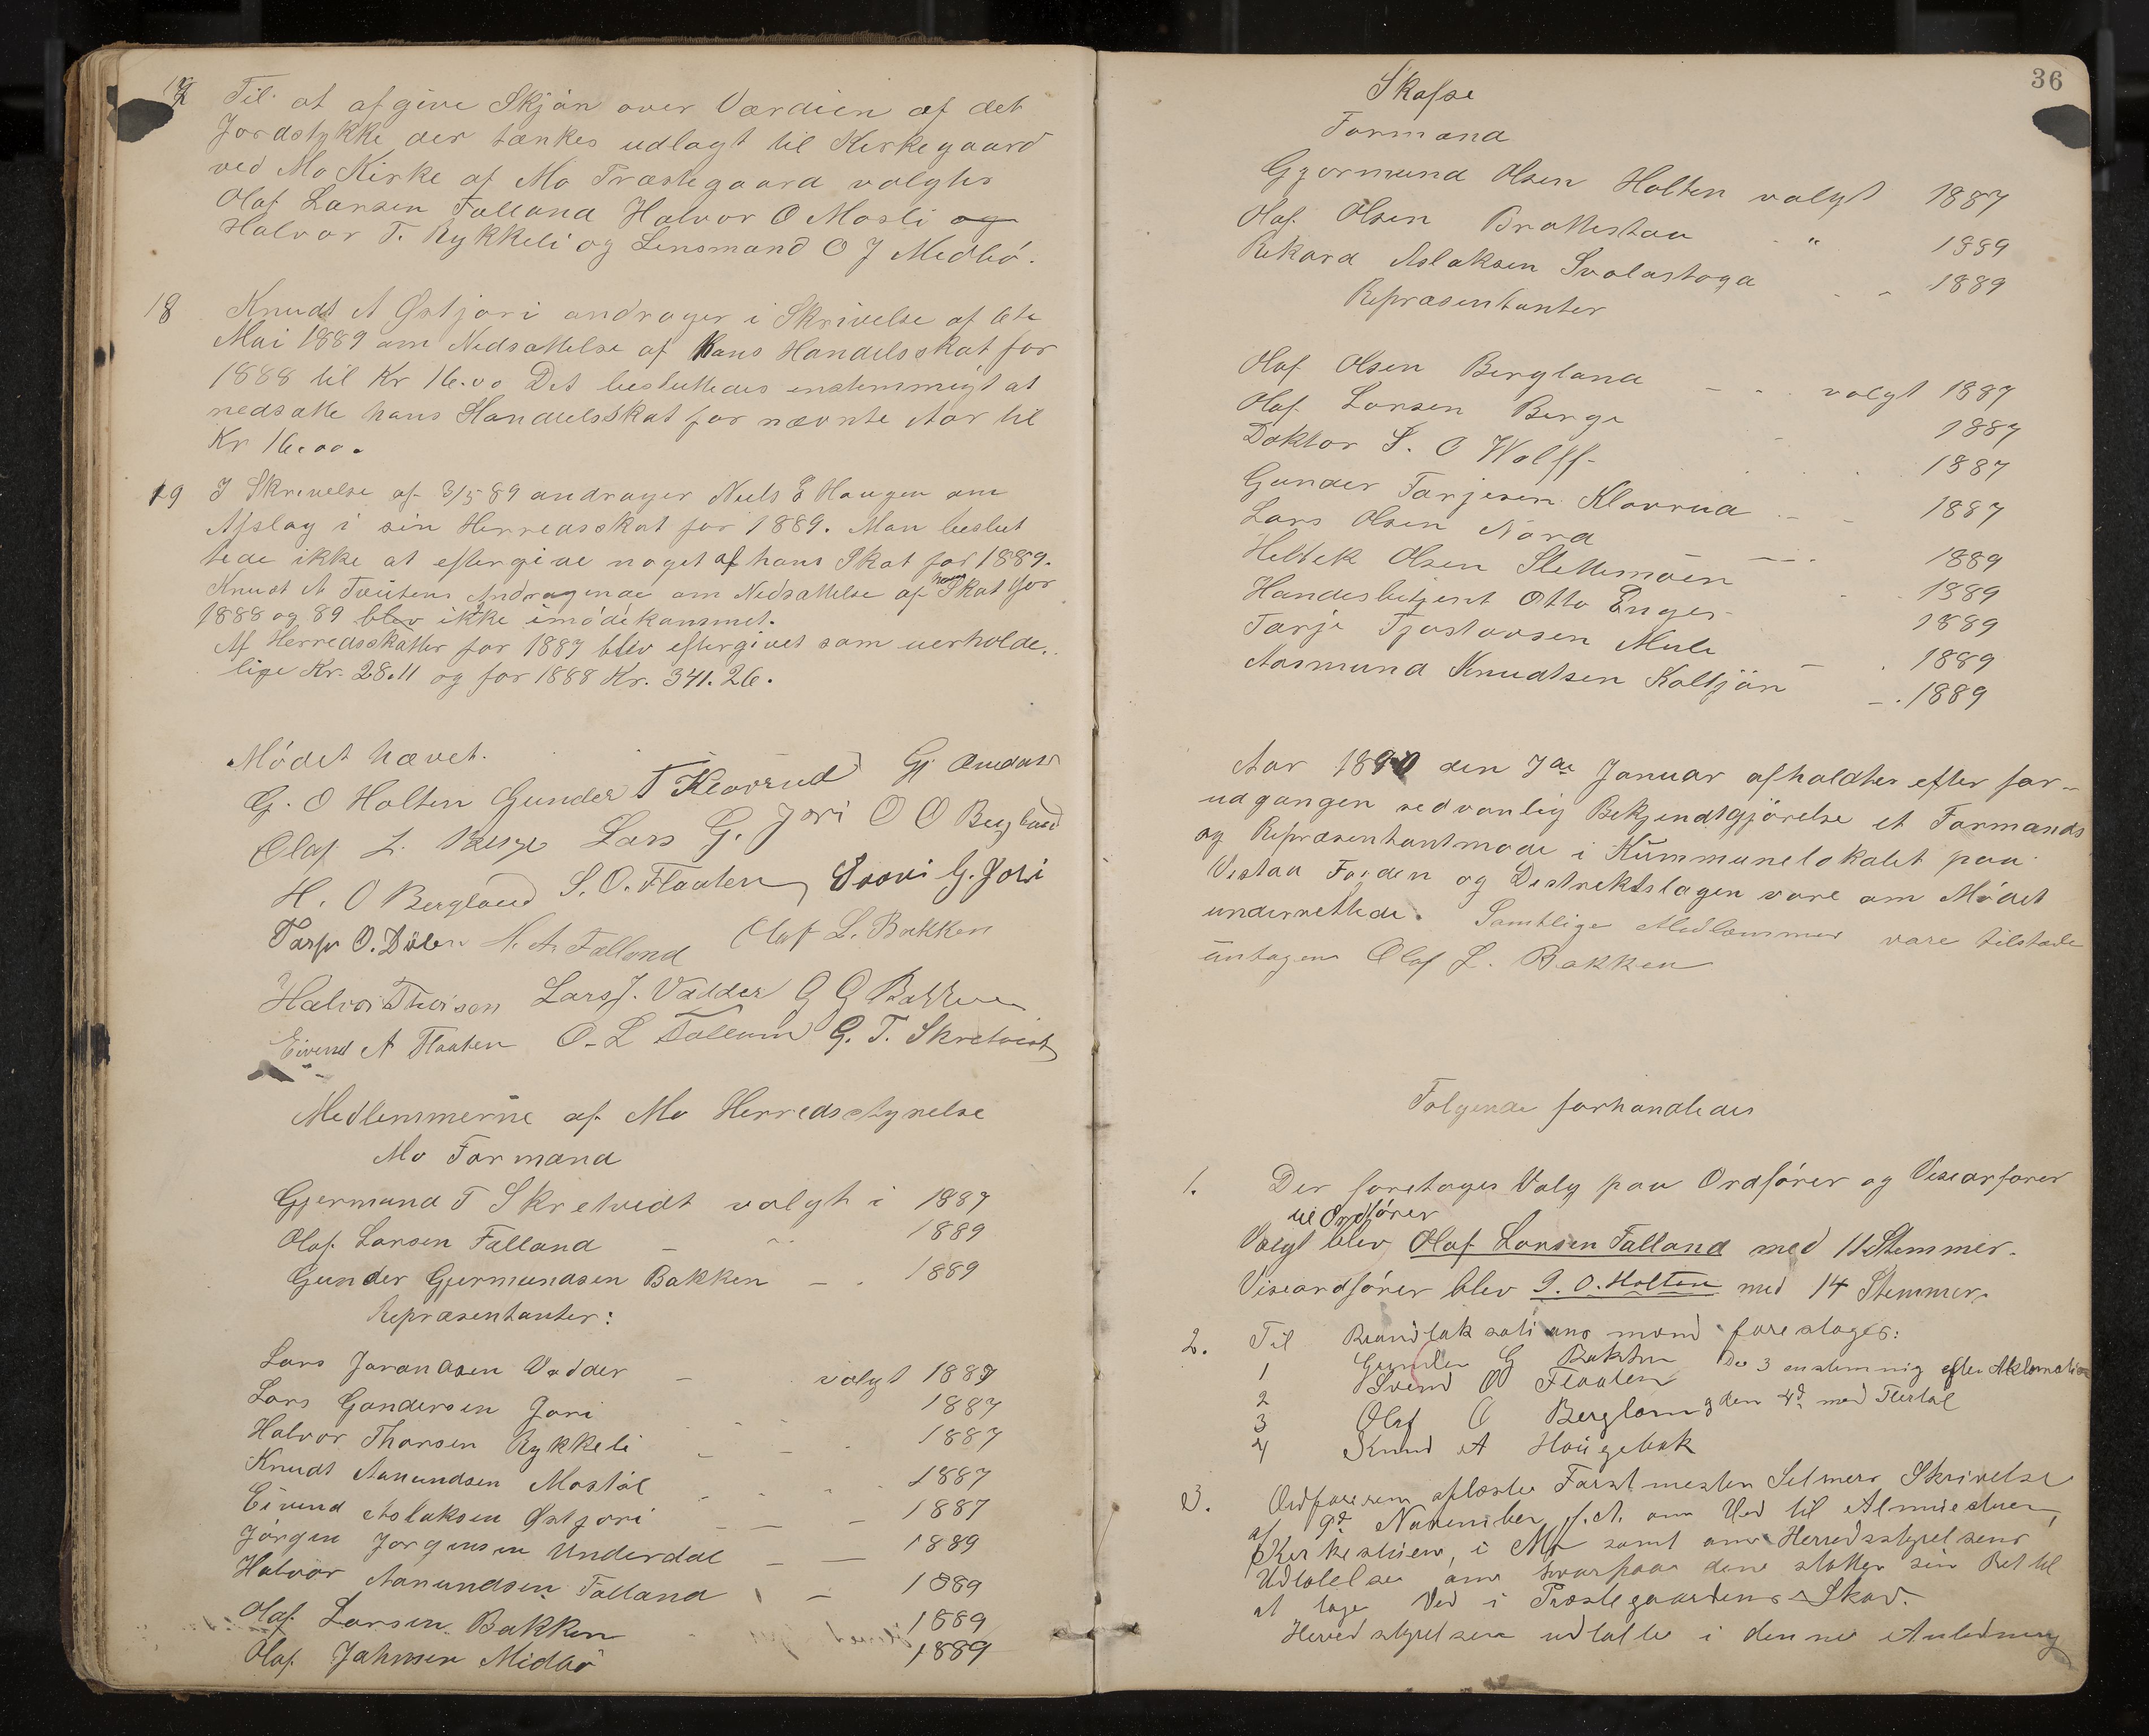 17 Til at afgive Skjön over Værdien af det
Jordstykke der tænkes udlagt til Kirkegaard
ved Mo Kirke af Mo Præstegaard valgtes
Olaf Larsen Falland Halvor O Mosli og
Halvor T. Rykkeli og Lensmand O J Midbö.
18 Knudt A Østjori andrager i Skrivelse af 6te
Mai 1889 om Nedsættelse af Hans Handelsskat for
1888 til Kr 16.00 Det besluttedes enstemmigt at
nedsætte hans Handelsskat for nævnte Aar til
Kr 16.00.
19 I Skrivelse af 3/5 89 andrager Niels E Haugen om
Afslag i sin Herredsskat for 1889. Man beslut
tede ikke at eftergive noget af hans Skat for 1889.
Knudt A Andragende om Nedsættelse af hans Skat for
1888 og 89 blev ikke imödekommet.
Af Herredsskatter for 1887 blev eftergivet som uerholde.
lige Kr. 28.11 og for 1888 Kr. 341.26.
Mödet hævet.
G. O Holten Gunder T Klovrud Gj
Olaf L. Berge Lars G. Jori O O Bergland
H. O Bergland S. O. Flaaten Svovi G. Jori
Tarje O. Dölen H. A. Falland Olaf L. Bakken
Halvor Thorson Lars J. Vadder G G Bakken
Eivend A Flaaten O. L Falland G. T. Skretveit
Medlemmerne af Mo Herredsstyrelse
Mo Formænd
Gjermund T Skretvedt valgt i 1887
Olaf Larsen Falland 1889
Gunder Gjermundsen Bakken 1889
Repræsentanter:
Lars Jorandsen Vadder valgt 1887
Lars Gundersen Jori 1887
Halvor Thorsen Rykkeli 1887
Knudt Aanundsen Mostöl 1887
Eivend Aslaksen Østjori 1887
Jörgen Jörgensen Underdal 1889
Halvor Aanundsen Falland 1889
Olaf Larsen Bakken 1889
Olaf Johnsen Midbö 1889
36
Skafse
Formænd
Gjermund Olsen Holten valgt 1887
Olaf Olsen Brattestaa " 1889
Rikard Aslaksen Svalastoga 1889
Repræsentanter
Olaf Olsen Bergland valgt 1887
Olaf Larsen Berge 1887
Doktor S. O Wolff 1887
Gunder Tarjesen Klovrud 1887
Lars Olsen Nörd 1889
Heltek Olsen Slettemöen 1889
Handesbetjent Otto Enger 1889
Tarje Tjostovsen Mule 1889
Aasmund Knudtsen Koltjön 1889
Aar 1890 den 7de Januar afholdtes efter for-
udgangen sedvanlig Bekjendtgjörelse et Formands
og Repræsentantmöde i Kummunelokalet paa
Vistaa Fogden og Distriktslægen vare om Mödet
underrettede. Samtlige Medlæmmer vare tilstæde
untagen Olaf L. Bakken
Følgende forhandledes
1. Der foretoges Valg paa Ordförer og Viseorförer
til Ordförer
Valgt blev Olaf Larsen Falland med 11 Stemmer.
Viseordförer blev G. O. Holten med 14 Stemmer.
2. Til Brandtaksations mænd forestoges:
1 Gunder G Bakken De 3 enstemmig efter Aklamation
2 Svend O Flaaten
3 Olaf O Bergland og den 4de med Flertal
4 Knud A Haugebak
3. Ordföreren oplæste Forstmester Selmers Skrivelse
af 9de November f. A. om Ved til Almuestuen,
Kirkestuen, i Mo samt om Herredsstyrelsens
Udtalelse om hvorpaa den støtter sin Ret til
at tage Ved i Præstegaardens Skov.
Herredsstyrelsen udtalte i denne Anledning